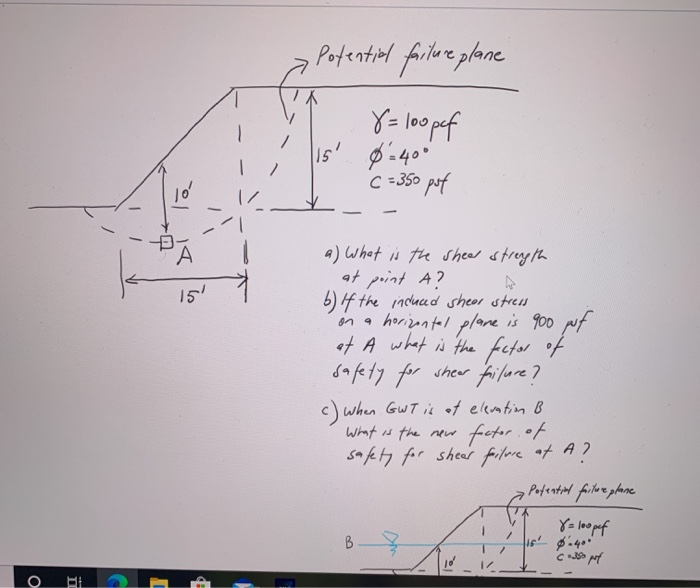 Potential failure plane
γ = 100 pcf
15'
φ' = 40°
C = 350 psf
10'
A
15'
a) What is the shear strength
at point A?
b) If the induced shear stress
on a horizontal plane is 900 psf
at A what is the factor of
safety for shear failure?
c) When GWT is at elevation B
What is the new factor of
safety for shear failure at A?
Potential failure plane
γ = 100 pcf
B
15'
φ' = 40°
C = 350 psf
10'